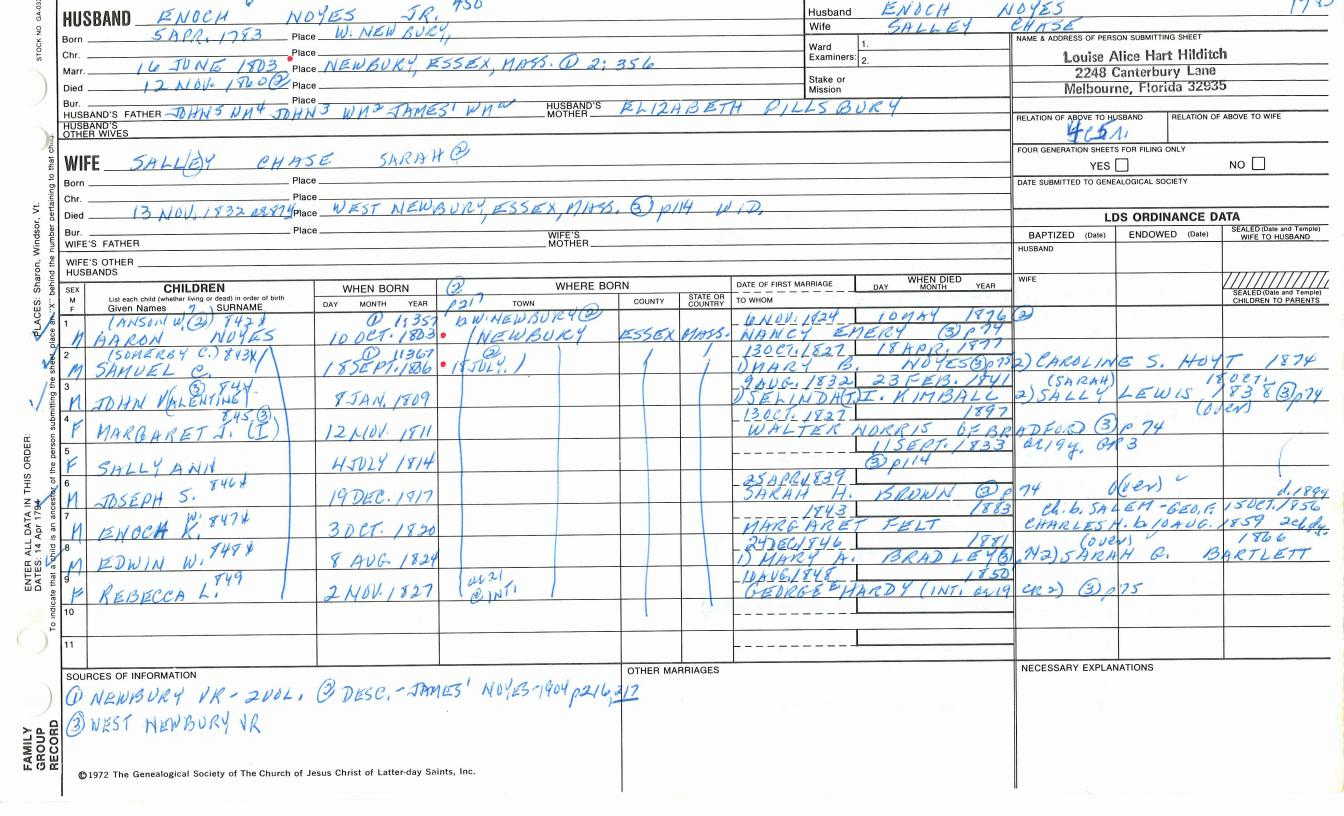 STOCK NO. GA-032
HUSBAND ENOCH NOYES JR. 450
Born 5 APR. 1783 Place W. NEWBURY,
Chr. Place
Marr. 16 JUNE 1803 Place NEWBURY, ESSEX, MASS. ① 2: 356
Died 12 NOV. 1860 ② Place
Bur. Place
HUSBAND'S FATHER JOHN⁵ WM⁴ JOHN³ WM² JAMES¹ WM HUSBAND'S MOTHER ELIZABETH PILLSBURY
HUSBAND'S OTHER WIVES
Husband ENOCH NOYES
Wife SALLEY CHASE
Ward Examiners: 1.
2.
Stake or Mission
NAME & ADDRESS OF PERSON SUBMITTING SHEET
Louise Alice Hart Hilditch
2248 Canterbury Lane
Melbourne, Florida 32935
RELATION OF ABOVE TO HUSBAND RELATION OF ABOVE TO WIFE
FOUR GENERATION SHEETS FOR FILING ONLY
YES NO
DATE SUBMITTED TO GENEALOGICAL SOCIETY
WIFE SALL(E)Y CHASE SARAH ②
Born Place
Chr. Place
Died 13 NOV. 1832 Place WEST NEWBURY, ESSEX, MASS. ③ p114 WID.
Bur. Place
WIFE'S FATHER WIFE'S MOTHER
WIFE'S OTHER HUSBANDS
LDS ORDINANCE DATA
BAPTIZED (Date) ENDOWED (Date) SEALED (Date and Temple) WIFE TO HUSBAND
HUSBAND
WIFE
SEALED (Date and Temple) CHILDREN TO PARENTS
SEX M F CHILDREN List each child (whether living or dead) in order of birth Given Names SURNAME
WHEN BORN DAY MONTH YEAR
② p217 WHERE BORN TOWN COUNTY STATE OR COUNTRY
DATE OF FIRST MARRIAGE TO WHOM
WHEN DIED DAY MONTH YEAR
1 (ANSON W. ③) 842 ① 1:357 W. NEWBURY ② 6 NOV. 1824 10 MAY 1876 ②
M AARON NOYES 10 OCT. 1803 (NEWBURY ESSEX MASS. NANCY EMERY ③ p74
2 (SOMERBY C.) 843 ① 1:367 ② 13 OCT. 1827 18 APR. 1877
M SAMUEL C. 18 SEPT. 1806 18 JULY. 1) MARY B. NOYES ③ p75 2) CAROLINE S. HOYT 1874
3 ③ 844 9 AUG. 1832 23 FEB. 1841 (SARAH) 18 OCT.
M JOHN VALENTINE 8 JAN. 1809 1) SELINDA I. KIMBALL 2) SALLY LEWIS 1838 ③ p74
4 845 ③ 13 OCT. 1827 1897 (over)
F MARGARET J. (I) 12 NOV. 1811 WALTER NORRIS OF BRADFORD ③ p74
5 11 SEPT. 1833
F SALLY ANN 4 JULY 1814 ③ p114
6 846 25 APR 1839
M JOSEPH S. 19 DEC. 1817 SARAH H. BROWN ③ p74 (over) d. 1899
7 W. 847 1843 1883 Ch. b. SALEM - GEO. F. 15 OCT. 1856
M ENOCH K. 3 OCT. 1820 MARGARET FELT CHARLES H. b. 10 AUG. 1859
8 848 24 DEC 1846 1881 (over) 1866
M EDWIN W. 8 AUG. 1824 1) MARY A. BRADLEY ③ 2) SARAH G. BARTLETT
9 849 10 AUG. 1848 1850
F REBECCA L. 2 NOV. 1827 @ INT. GEORGE HARDY (INT. ③ p75
10
11
SOURCES OF INFORMATION
① NEWBURY VR - 2 VOL. ② DESC. - JAMES¹ NOYES - 1904 p216, 217
③ WEST NEWBURY VR
OTHER MARRIAGES
NECESSARY EXPLANATIONS
©1972 The Genealogical Society of The Church of Jesus Christ of Latter-day Saints, Inc.
FAMILY GROUP RECORD
ENTER ALL DATA IN THIS ORDER:
DATES: 14 Apr 1794
PLACES: Sharon, Windsor, Vt.
To indicate that a child is an ancestor of the person submitting the sheet, place an "X" behind the number pertaining to that child